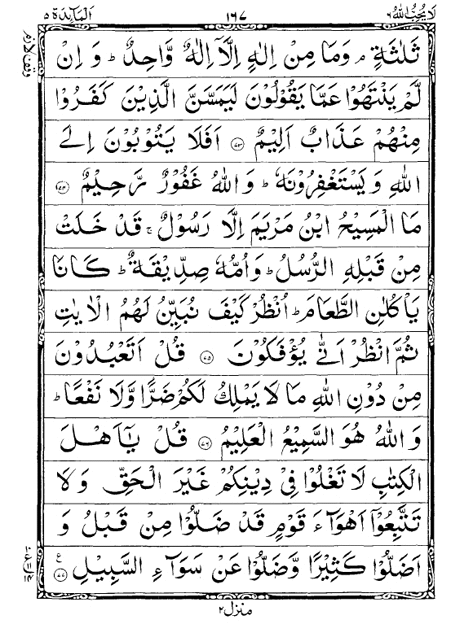 لا يحب الله ٦ ١٦٧ المآئدة ٥
ثَلٰثَةٍ ۘ وَمَا مِنْ اِلٰهٍ اِلَّاۤ اِلٰهٌ وَّاحِدٌ ؕ وَ اِنْ
لَّمْ يَنْتَهُوْا عَمَّا يَقُوْلُوْنَ لَيَمَسَّنَّ الَّذِيْنَ كَفَرُوْا
مِنْهُمْ عَذَابٌ اَلِيْمٌ ﴿۷۳﴾ اَفَلَا يَتُوْبُوْنَ اِلَى
اللّٰهِ وَيَسْتَغْفِرُوْنَهٗ ؕ وَاللّٰهُ غَفُوْرٌ رَّحِيْمٌ ﴿۷۴﴾
مَا الْمَسِيْحُ ابْنُ مَرْيَمَ اِلَّا رَسُوْلٌ ۚ قَدْ خَلَتْ
مِنْ قَبْلِهِ الرُّسُلُ ؕ وَاُمُّهٗ صِدِّيْقَةٌ ؕ كَانَا
يَاْكُلٰنِ الطَّعَامَ ؕ اُنْظُرْ كَيْفَ نُبَيِّنُ لَهُمُ الْاٰيٰتِ
ثُمَّ انْظُرْ اَنّٰى يُؤْفَكُوْنَ ﴿۷۵﴾ قُلْ اَتَعْبُدُوْنَ
مِنْ دُوْنِ اللّٰهِ مَا لَا يَمْلِكُ لَكُمْ ضَرًّا وَّلَا نَفْعًا ؕ
وَ اللّٰهُ هُوَ السَّمِيْعُ الْعَلِيْمُ ﴿۷۶﴾ قُلْ يٰۤاَهْلَ
الْكِتٰبِ لَا تَغْلُوْا فِيْ دِيْنِكُمْ غَيْرَ الْحَقِّ وَلَا
تَتَّبِعُوْۤا اَهْوَآءَ قَوْمٍ قَدْ ضَلُّوْا مِنْ قَبْلُ وَ
اَضَلُّوْا كَثِيْرًا وَّضَلُّوْا عَنْ سَوَآءِ السَّبِيْلِ ﴿۷۷﴾ ع
منزل ٢